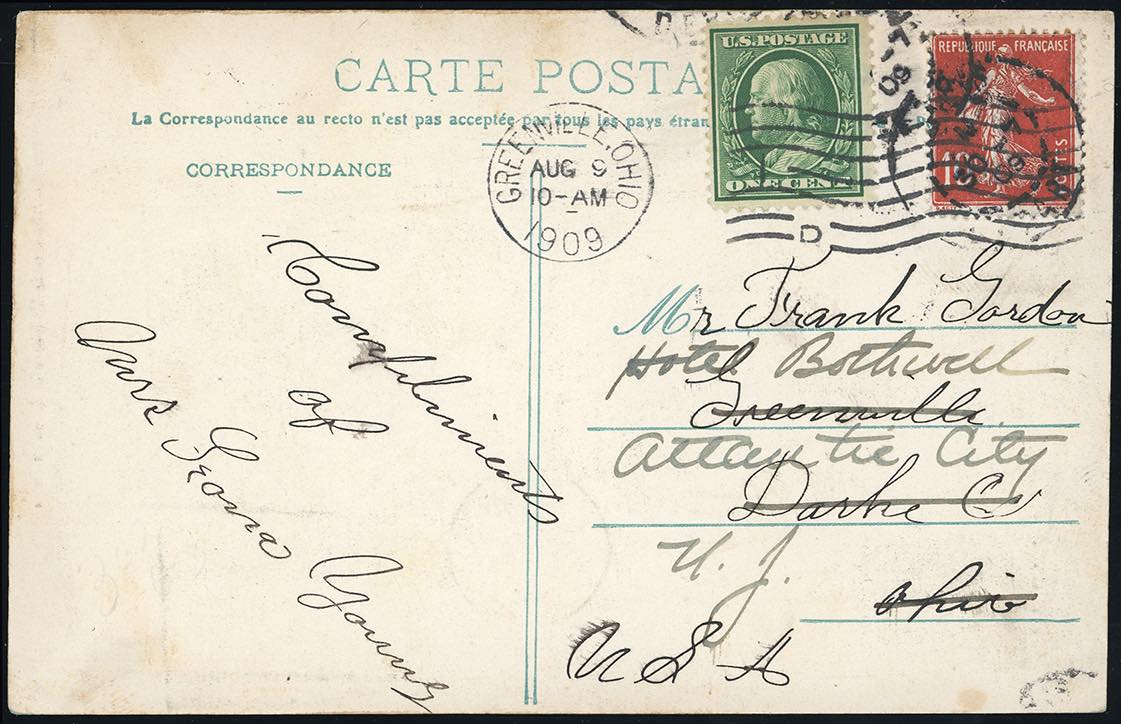 CARTE POSTA
La Correspondance au recto n'est pas acceptée par tous les pays étran
CORRESPONDANCE
U.S. POSTAGE
ONE CENT
REPUBLIQUE FRANÇAISE
10
POSTES
GREENVILLE, OHIO
AUG 9
10-AM
1909
D
Compliments
of
Young
Mr Frank Gordon
Hotel Bothwell
Greenville
Atlantic City
Darke Co
N. J.
Ohio
U S A